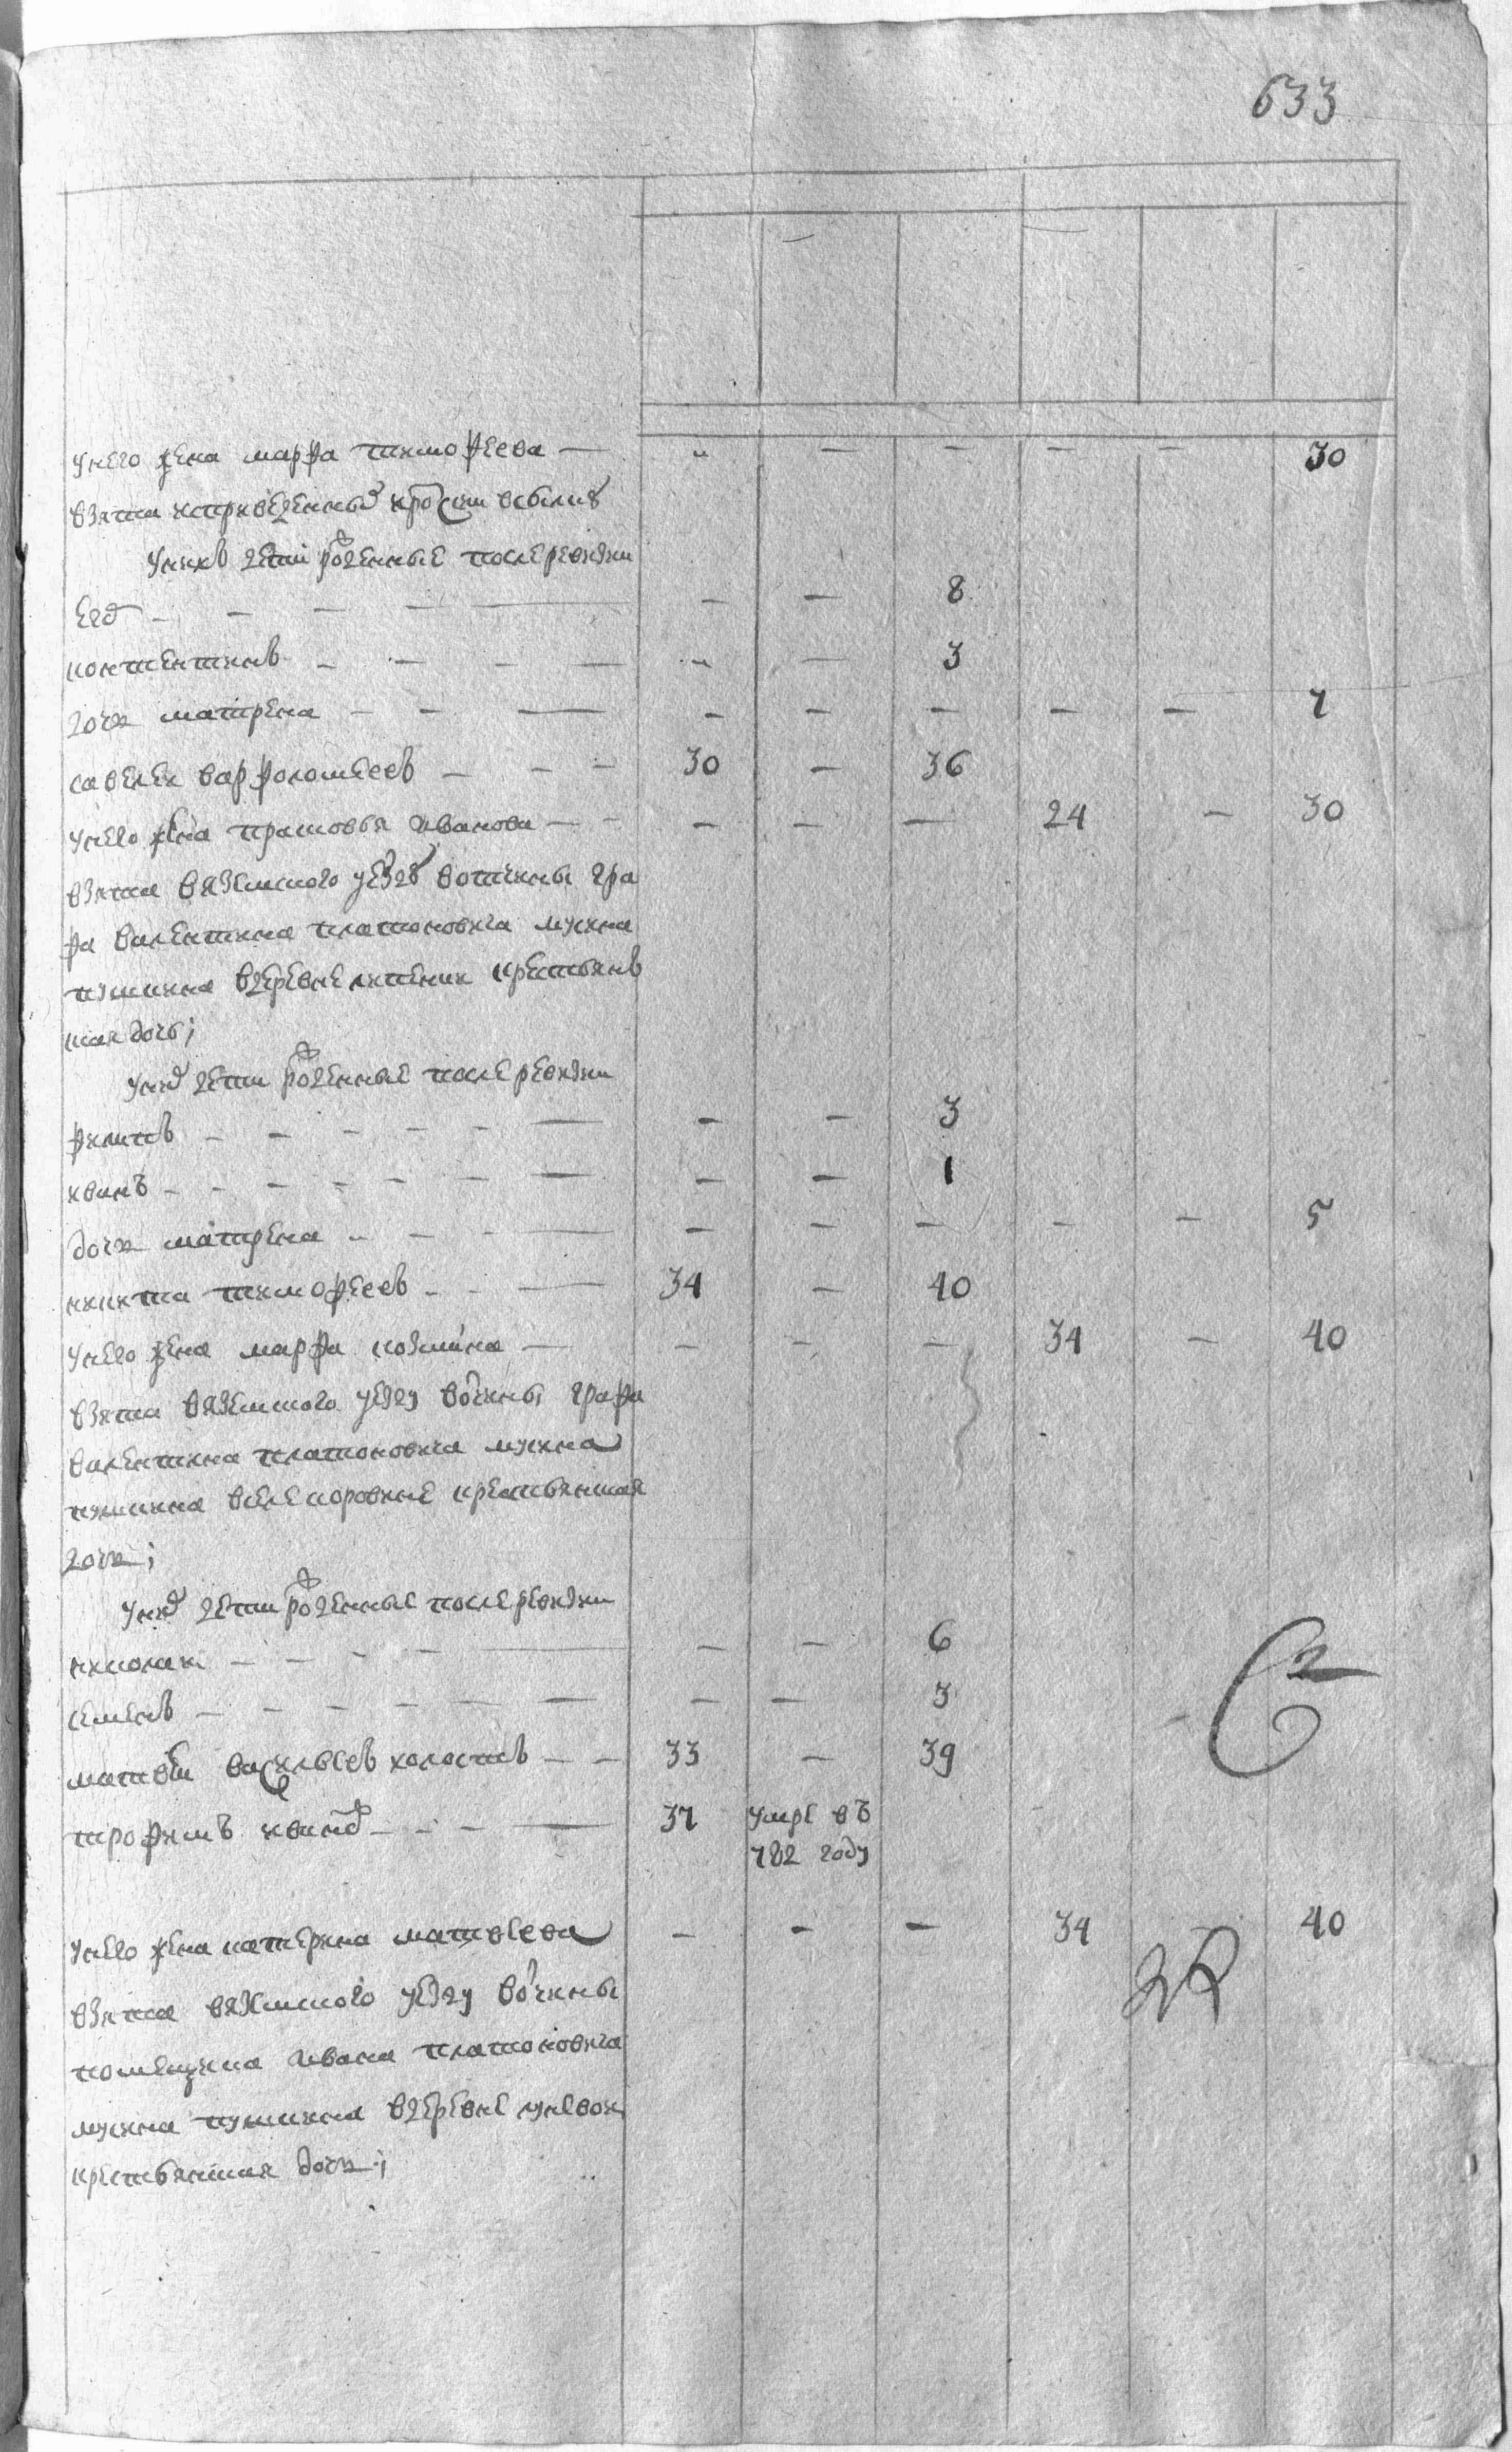 633
у него жена марфа тимофеева — „ — — — — 30
взята
у них дети рожденные после ревизии
— — — — — — 8
константинъ — — — — „ — 3
дочь матрена — — — — — — — — 7
савелеи варфоломеевъ — — — 30 — 36
у него жена прасковья иванова — — — — — 24 — 30
взята вяземского уезду вотчины гра
фа валентина платоновича мусина
пушкина в деревне крестьянъ
ская дочь;
у них дети рожденные после ревизии
филипъ — — — — — — — — 3
иванъ — — — — — — — — — 1
дочь матрена — — — — — — — — — 5
никита тимофеевъ — — — 34 — 40
у него жена марфа козмина — — — — 34 — 40
взята вяземского уезду вотчины графа
валентина платоновича мусина
пушкина в селе крестьянская
дочь;
у них дети рожденные после ревизии
николаи — — — — — — — 6
семенъ — — — — — — — — 3
матвеи васильевъ холостъ — — 33 — 39
трофимъ ивановъ — — — — 37 умре въ
782 году
у него жена катерина матвеева — — — 34 40
взята вяземского уезду вотчины
помещика ивана платоновича
мусина пушкина в деревне
крестьянская дочь;